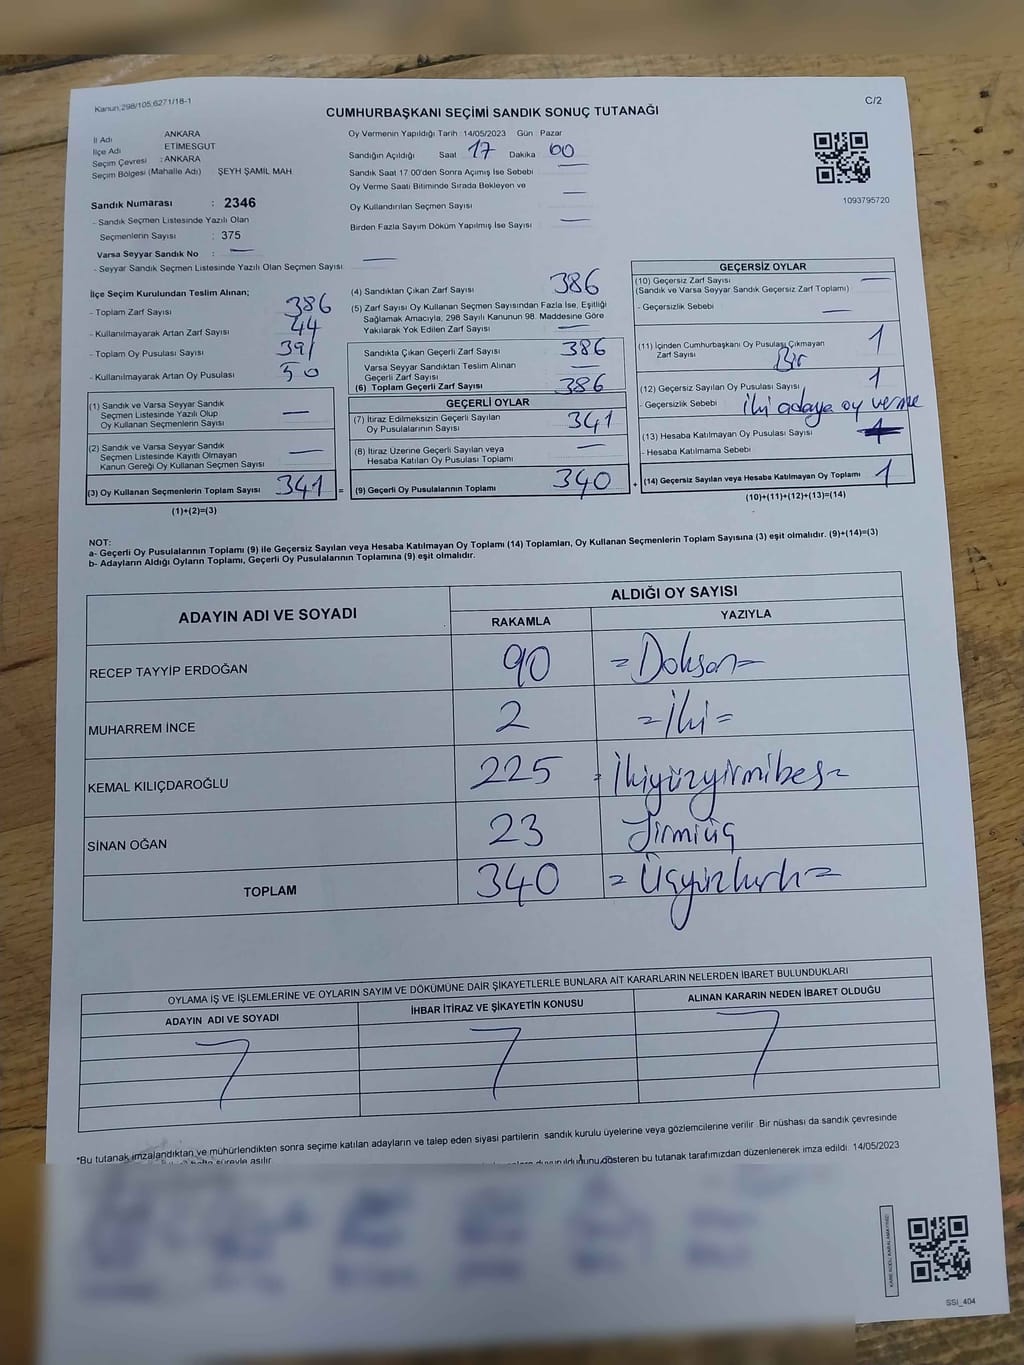 Kanun;298/105;6271/18-1
C/2
CUMHURBAŞKANI SEÇİMİ SANDIK SONUÇ TUTANAĞI
İl Adı ANKARA
İlçe Adı ETİMESGUT
Seçim Çevresi : ANKARA
Seçim Bölgesi (Mahalle Adı) ŞEYH ŞAMİL MAH.
Sandık Numarası : 2346
- Sandık Seçmen Listesinde Yazılı Olan
Seçmenlerin Sayısı : 375
Varsa Seyyar Sandık No : —
- Seyyar Sandık Seçmen Listesinde Yazılı Olan Seçmen Sayısı: —
Oy Vermenin Yapıldığı Tarih 14/05/2023 Gün Pazar
Sandığın Açıldığı Saat 17 Dakika 00
Sandık Saat 17.00'den Sonra Açımış İse Sebebi —
Oy Verme Saati Bitiminde Sırada Bekleyen ve
Oy Kullandırılan Seçmen Sayısı —
Birden Fazla Sayım Döküm Yapılmış İse Sayısı —
1093795720
İlçe Seçim Kurulundan Teslim Alınan;
- Toplam Zarf Sayısı 386
- Kullanılmayarak Artan Zarf Sayısı 44
- Toplam Oy Pusulası Sayısı 391
- Kullanılmayarak Artan Oy Pusulası 50
(1) Sandık ve Varsa Seyyar Sandık
Seçmen Listesinde Yazılı Olup
Oy Kullanan Seçmenlerin Sayısı —
(2) Sandık ve Varsa Seyyar Sandık
Seçmen Listesinde Kayıtlı Olmayan
Kanun Gereği Oy Kullanan Seçmen Sayısı —
(3) Oy Kullanan Seçmenlerin Toplam Sayısı 341 =
(1)+(2)=(3)
(4) Sandıktan Çıkan Zarf Sayısı 386
(5) Zarf Sayısı Oy Kullanan Seçmen Sayısından Fazla İse, Eşitliği
Sağlamak Amacıyla; 298 Sayılı Kanunun 98. Maddesine Göre
Yakılarak Yok Edilen Zarf Sayısı —
Sandıkta Çıkan Geçerli Zarf Sayısı 386
Varsa Seyyar Sandıktan Teslim Alınan
Geçerli Zarf Sayısı —
(6) Toplam Geçerli Zarf Sayısı 386
GEÇERLİ OYLAR
(7) İtiraz Edilmeksizin Geçerli Sayılan
Oy Pusulalarının Sayısı 341
(8) İtiraz Üzerine Geçerli Sayılan veya
Hesaba Katılan Oy Pusulası Toplamı —
(9) Geçerli Oy Pusulalarının Toplamı 340 +
GEÇERSİZ OYLAR
(10) Geçersiz Zarf Sayısı —
(Sandık ve Varsa Seyyar Sandık Geçersiz Zarf Toplamı)
- Geçersizlik Sebebi —
(11) İçinden Cumhurbaşkanı Oy Pusulası Çıkmayan
Zarf Sayısı 1 Bir
(12) Geçersiz Sayılan Oy Pusulası Sayısı 1
- Geçersizlik Sebebi iki adaya oy verme
(13) Hesaba Katılmayan Oy Pusulası Sayısı
- Hesaba Katılmama Sebebi
(14) Geçersiz Sayılan veya Hesaba Katılmayan Oy Toplamı 1
(10)+(11)+(12)+(13)=(14)
NOT:
a- Geçerli Oy Pusulalarının Toplamı (9) ile Geçersiz Sayılan veya Hesaba Katılmayan Oy Toplamı (14) Toplamları, Oy Kullanan Seçmenlerin Toplam Sayısına (3) eşit olmalıdır. (9)+(14)=(3)
b- Adayların Aldığı Oyların Toplamı, Geçerli Oy Pusulalarının Toplamına (9) eşit olmalıdır.
ADAYIN ADI VE SOYADI
ALDIĞI OY SAYISI
RAKAMLA YAZIYLA
RECEP TAYYİP ERDOĞAN 90 =Doksan=
MUHARREM İNCE 2 =İki=
KEMAL KILIÇDAROĞLU 225 =İkiyüzyirmibeş=
SİNAN OĞAN 23 Yirmiüç
TOPLAM 340 =Üçyüzkırk=
OYLAMA İŞ VE İŞLEMLERİNE VE OYLARIN SAYIM VE DÖKÜMÜNE DAİR ŞİKAYETLERLE BUNLARA AİT KARARLARIN NELERDEN İBARET BULUNDUKLARI
ADAYIN ADI VE SOYADI İHBAR İTİRAZ VE ŞİKAYETİN KONUSU ALINAN KARARIN NEDEN İBARET OLDUĞU
*Bu tutanak imzalandıktan ve mühürlendikten sonra seçime katılan adayların ve talep eden siyasi partilerin sandık kurulu üyelerine veya gözlemcilerine verilir. Bir nüshası da sandık çevresinde
süreyle asılır. duyurulduğunu gösteren bu tutanak tarafımızdan düzenlenerek imza edildi. 14/05/2023
KARE KODU KARALAMAYINIZ!
SSI_404